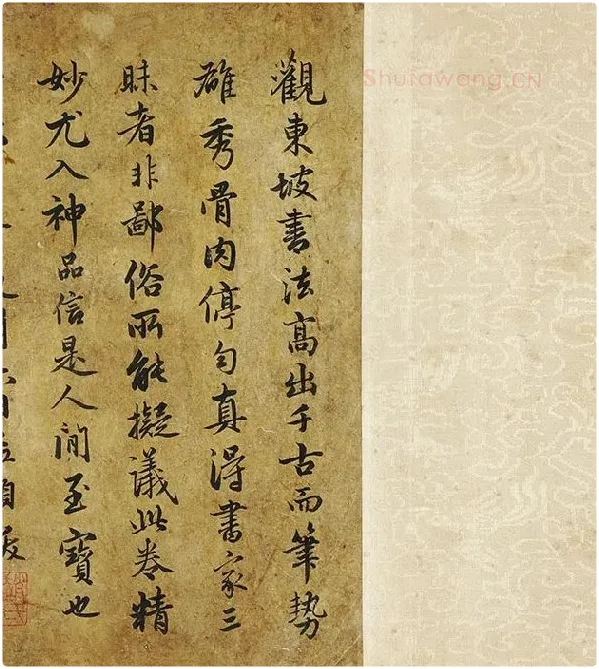 觀東坡書法高出千古而筆勢
雄秀骨肉停勻真得書家三
昧者非鄙俗所能擬議此卷精
妙尤入神品信是人間至寶也
Shufawang.CN